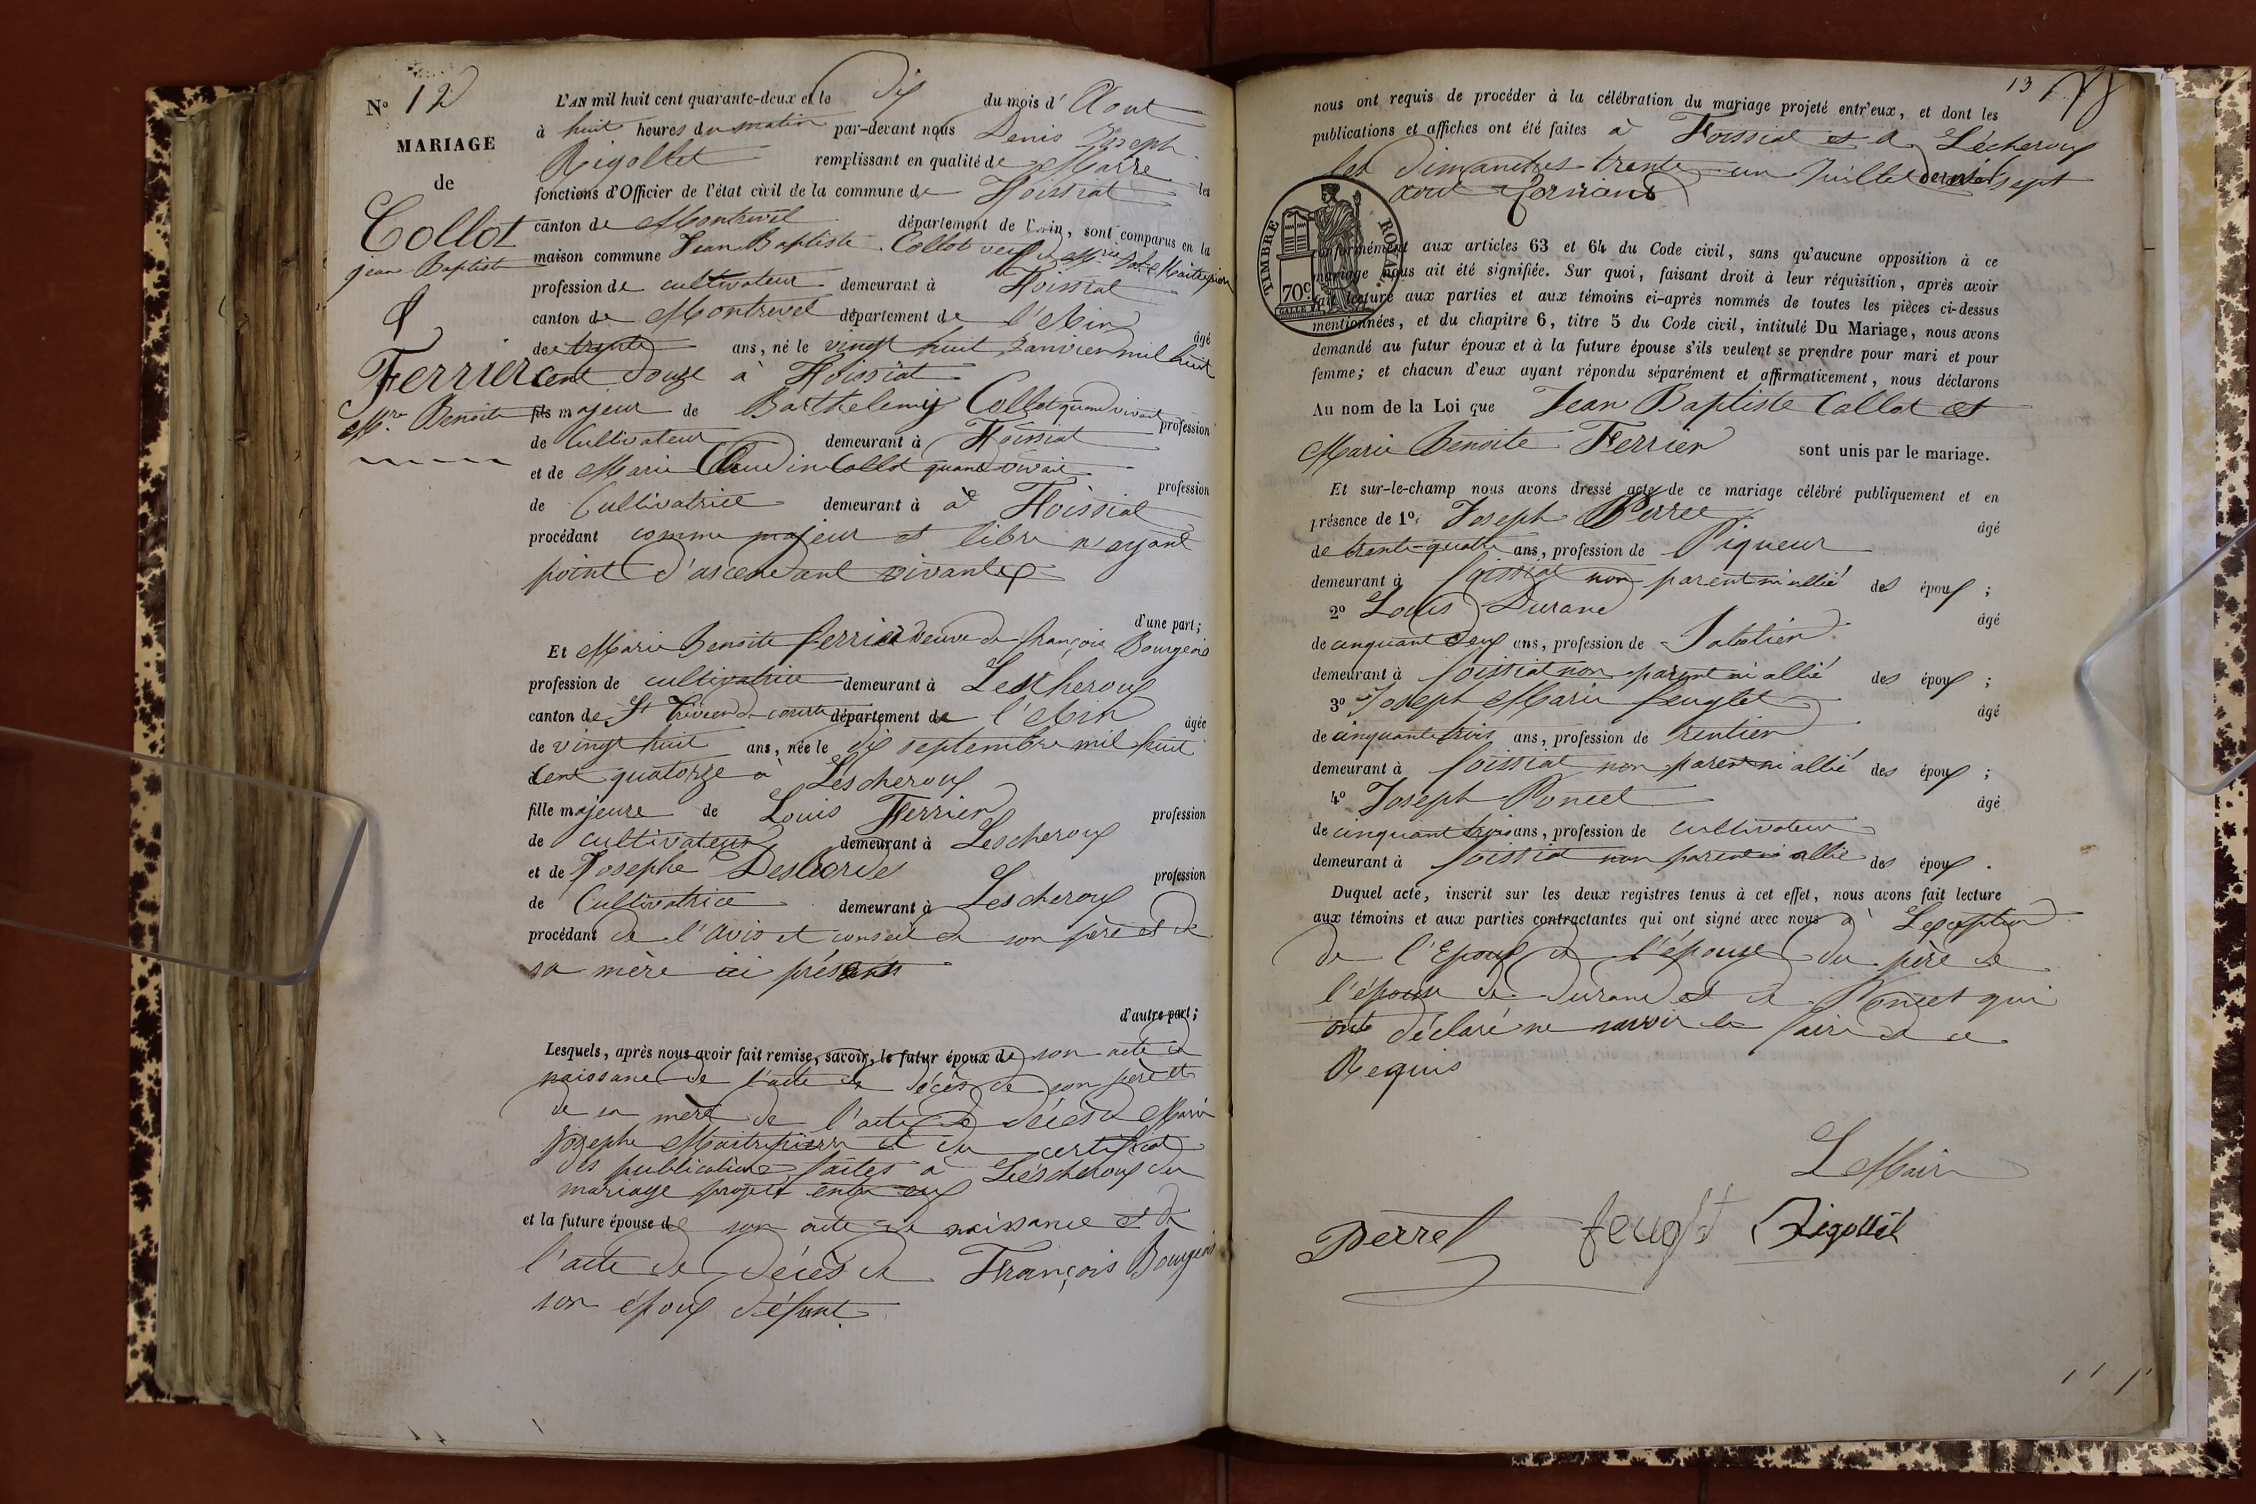 N° 12
MARIAGE
de
Collot
jean Baptiste
&
Ferrier
Mie Benoite
L'AN mil huit cent quarante-deux et le dix du mois d' Aout
à huit heures du matin par-devant nous Denis Joseph
Rigollet remplissant en qualité de Maire les
fonctions d'Officier de l'état civil de la commune de Foissiat
canton de Montrevel département de l'Ain, sont comparus en la
maison commune Jean Baptiste Collot veuf de Mrie Jph Maitrepierre
profession de cultivateur demeurant à Foissiat
canton de Montrevel département de l'Ain âgé
de trente ans, né le vingt huit Janvier mil huit
cent douze à Foissiat
fils majeur de Barthelemy Collot quand vivait profession
de Cultivateur demeurant à Foissiat
et de Marie Claudine Collot quand vivait profession
de Cultivatrice demeurant à à Foissiat
procédant comme majeur et libre n'ayant
point d'ascendant vivants
d'une part;
Et Marie Benoite ferrier veuve de françois Bourgeois
profession de cultivatrice demeurant à Lescheroux
canton de St Trivier de courtes département de l'Ain âgée
de vingt huit ans, née le dix septembre mil huit
cent quatorze à Lescheroux
fille majeure de Louis Ferrier profession
de cultivateur demeurant à Lescheroux
et de Josephe Desborde profession
de Cultivatrice demeurant à Lescheroux
procédant de l'avis et conseil de son père et de
sa mère ici présents
d'autre part;
Lesquels, après nous avoir fait remise, savoir, le futur époux de son acte de
naissance de l'acte de décès de son père et
de sa mère de l'acte de décès de Marie
Josephe Maitrepierre et du certificat
des publications faites à Lescheroux du
mariage projeté entre eux
et la future épouse de son acte de naissance et de
l'acte de décès de François Bourgeois
son époux défunt
13
nous ont requis de procéder à la célébration du mariage projeté entr'eux, et dont les
publications et affiches ont été faites à Foissiat et à Lécheroux
les dimanches trente un Juillet dernier et sept
aout courant
TIMBRE ROYAL
70c
conformément aux articles 63 et 64 du Code civil, sans qu'aucune opposition à ce
mariage nous ait été signifiée. Sur quoi, faisant droit à leur réquisition, après avoir
fait lecture aux parties et aux témoins ci-après nommés de toutes les pièces ci-dessus
mentionnées, et du chapitre 6, titre 5 du Code civil, intitulé Du Mariage, nous avons
demandé au futur époux et à la future épouse s'ils veulent se prendre pour mari et pour
femme; et chacun d'eux ayant répondu séparément et affirmativement, nous déclarons
Au nom de la Loi que Jean Baptiste Collot et
Marie Benoite Ferrier sont unis par le mariage.
Et sur-le-champ nous avons dressé acte de ce mariage célébré publiquement et en
présence de 1° Joseph Perret âgé
de trente-quatre ans, profession de Piqueur
demeurant à foissiat non parent ni allié des époux;
2° Louis Durand âgé
de cinquant deux ans, profession de Sabotier
demeurant à foissiat non parent ni allié des époux;
3° Joseph Marie feuglet âgé
de cinquante trois ans, profession de rentier
demeurant à foissiat non parent ni allié des époux;
4° Joseph Poncet âgé
de cinquant trois ans, profession de cultivateur
demeurant à foissiat non parent ni allié des époux.
Duquel acte, inscrit sur les deux registres tenus à cet effet, nous avons fait lecture
aux témoins et aux parties contractantes qui ont signé avec nous à Lexception
de l'Epoux de l'épouse du père de
l'épouse de durand et de Poncet qui
ont déclaré ne savoir le faire de ce
Requis
Le Maire
Perret feuglet Rigollet